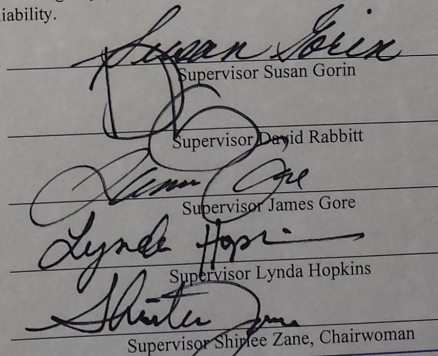 iability.
Susan Gorin
Supervisor Susan Gorin
Supervisor David Rabbitt
James Gore
Supervisor James Gore
Lynda Hopkins
Supervisor Lynda Hopkins
Shirlee Zane
Supervisor Shirlee Zane, Chairwoman